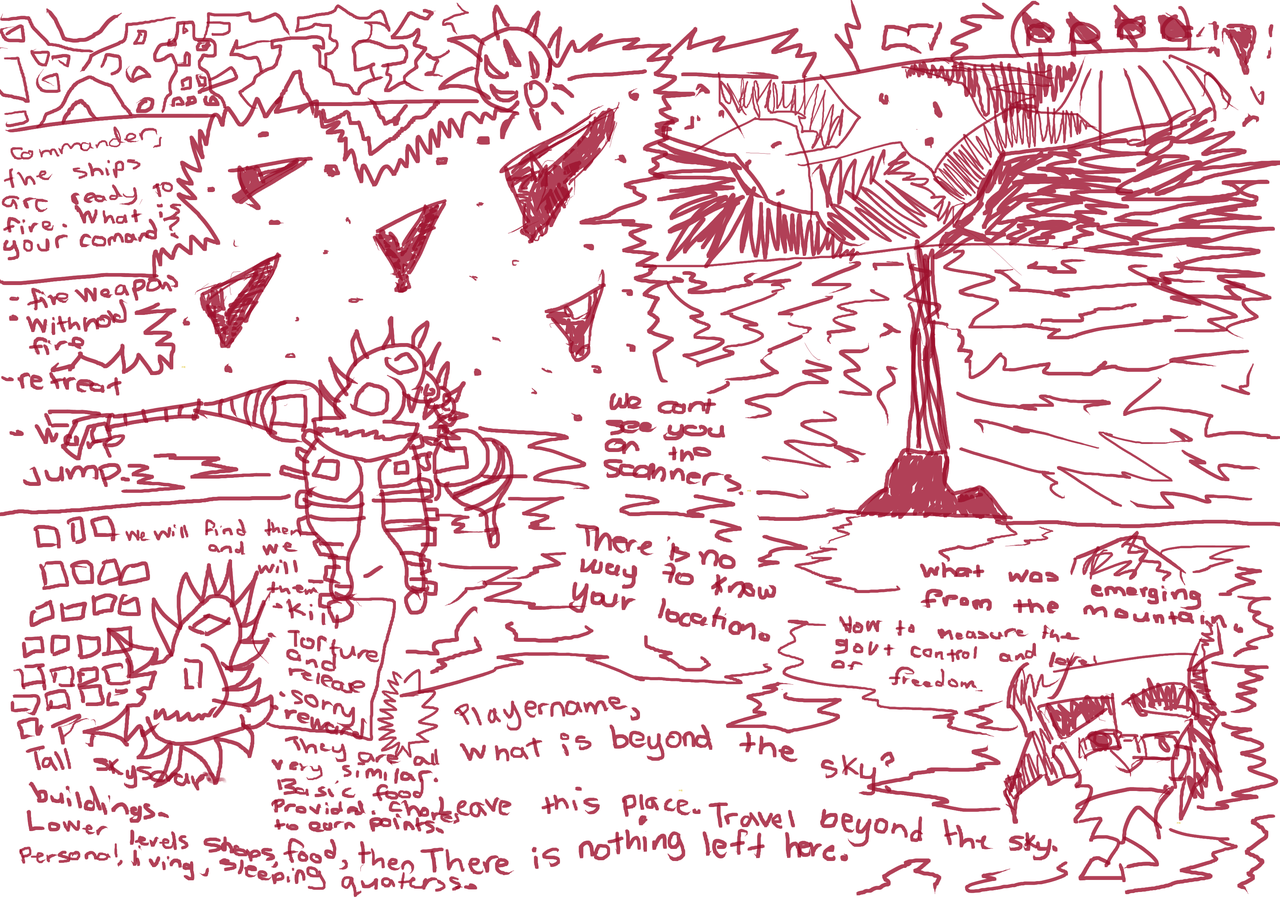 Commander,
the ships
are ready to
fire. What is
your comand
- fire weapons
- withhold
fire
- retreat
jump.
We cant
see you
on the
scanners.
There is no
way to know
your location.
what was emerging
from the mountain.
How to measure the
govt control and level
of freedom
We will find them
and we
will
them.
- Kill
- Torture
and
release
- sorry
rewain
They are all
very similar.
Basic food
Provided. Chores
to earn points.
Playername,
What is beyond the sky?
Leave this place. Travel beyond the sky.
There is nothing left here.
Tall skyscrapr
buildings.
Lower levels shops, food, then
Personal, living, sleeping quaterss.